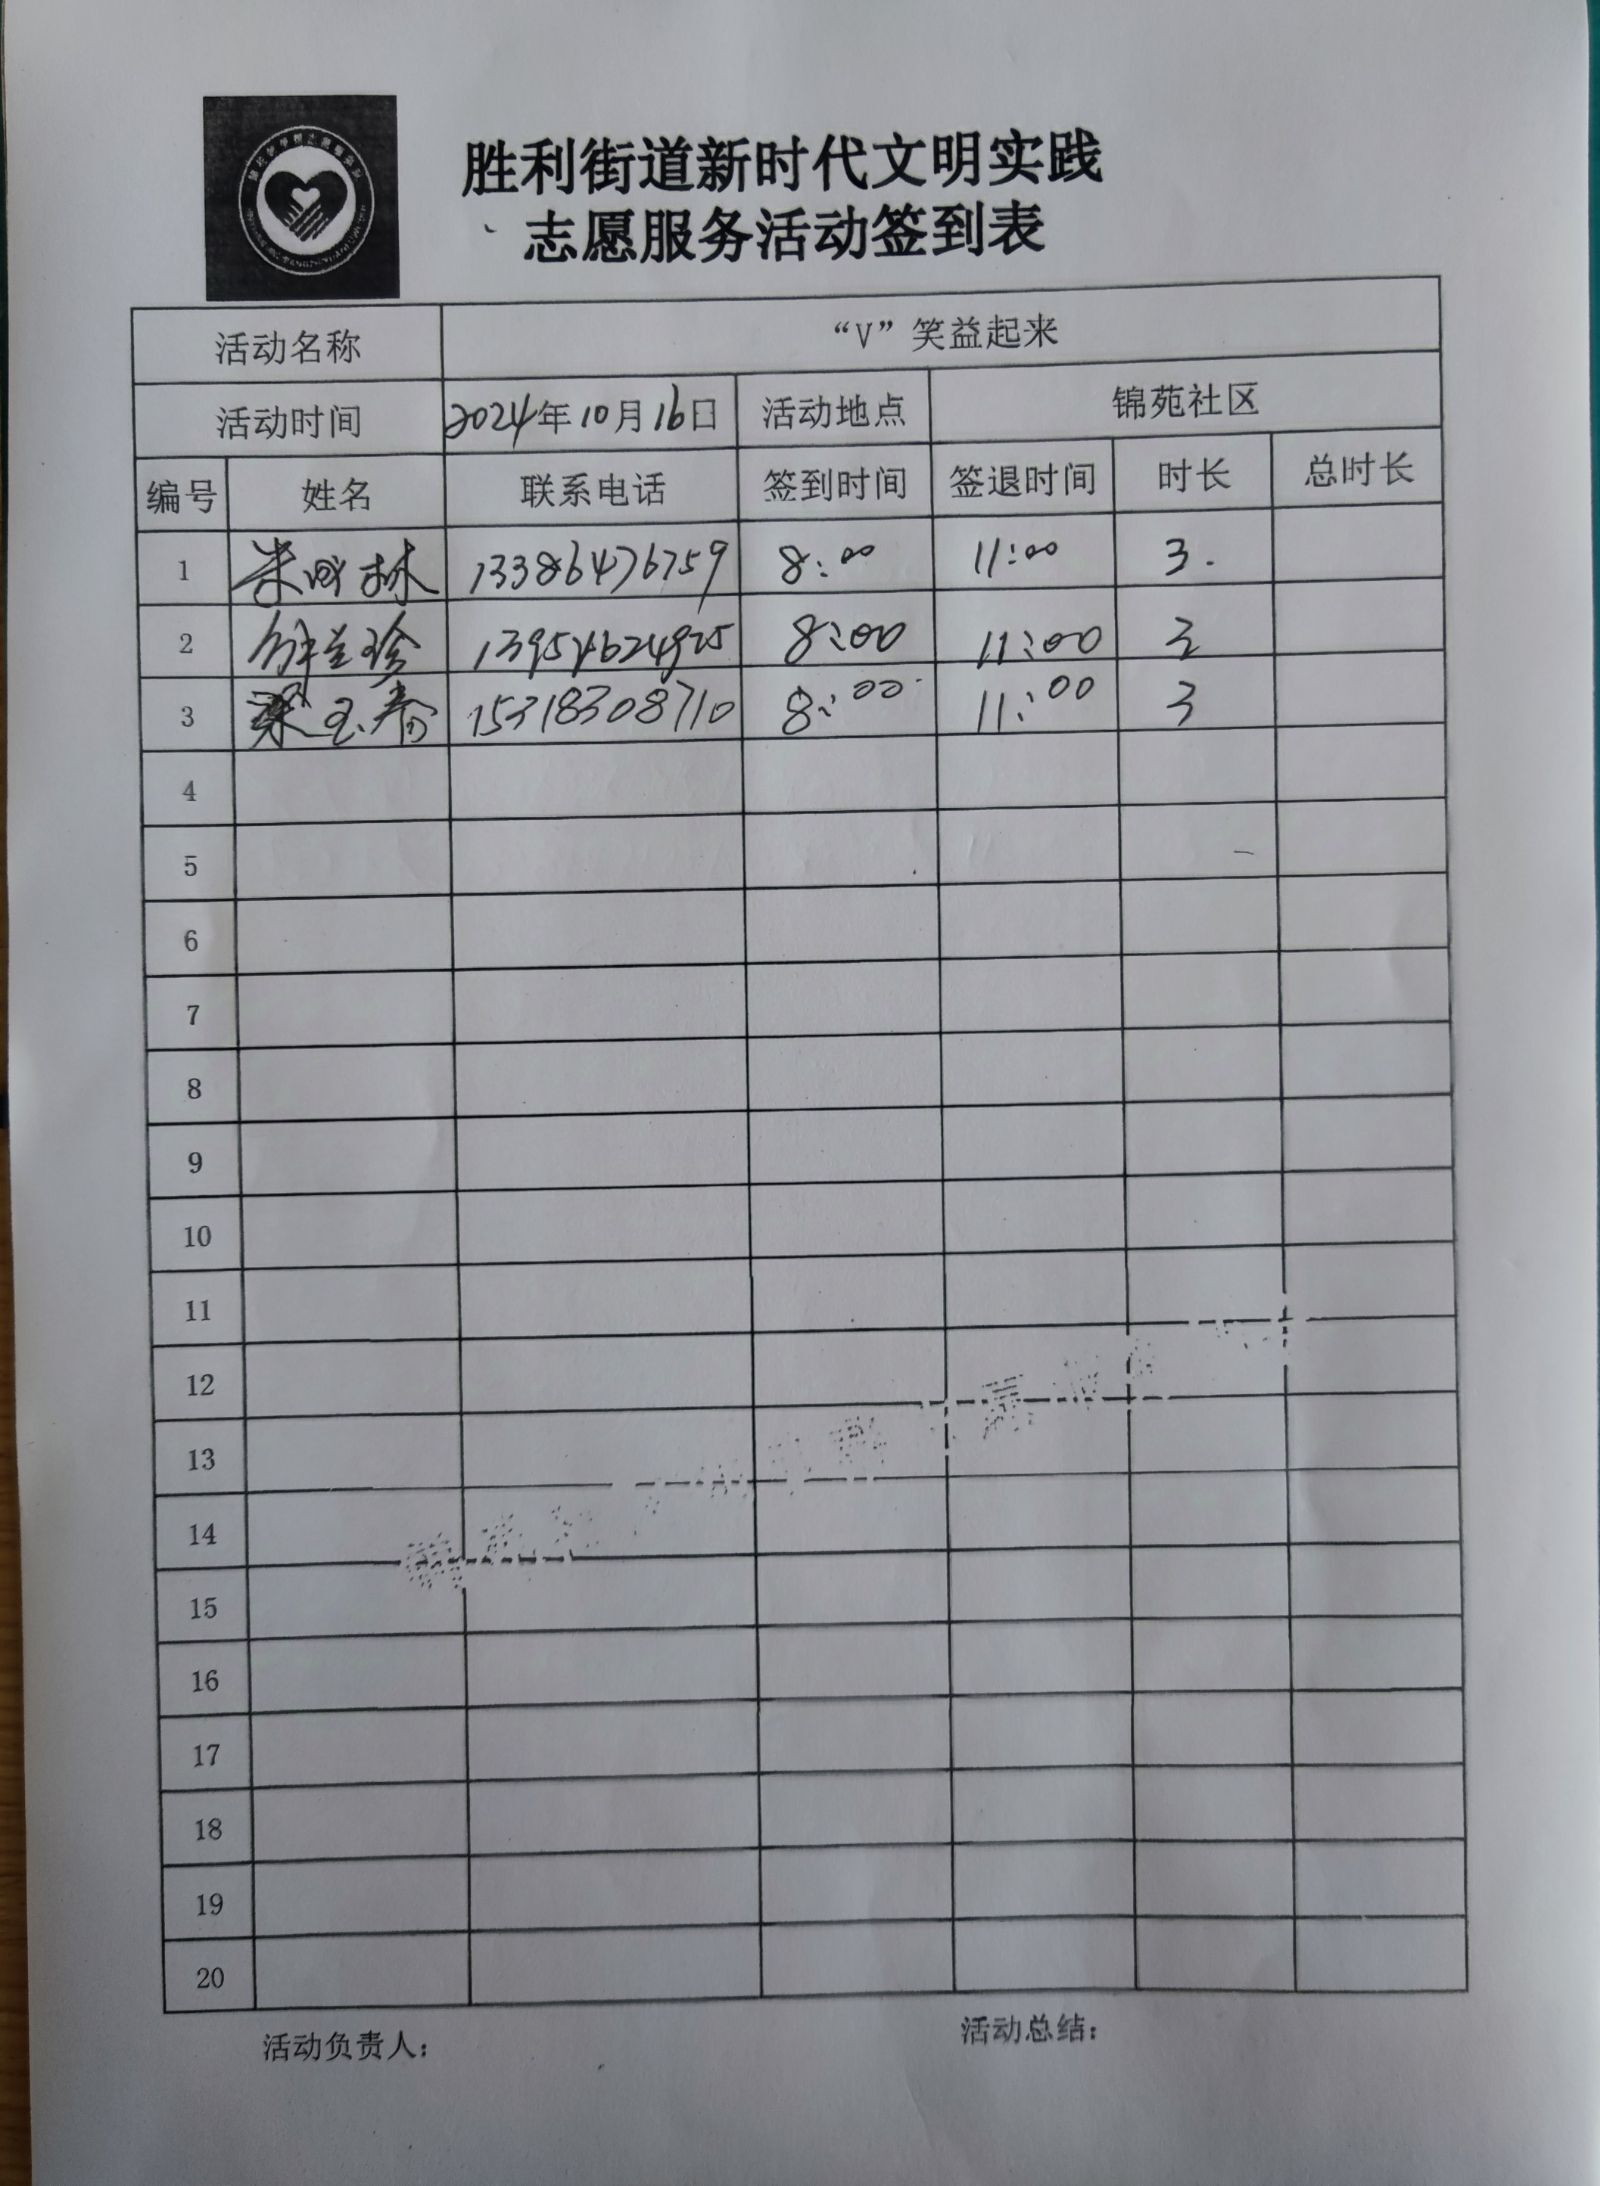 胜利街道新时代文明实践
志愿服务活动签到表
活动名称 “V”笑益起来
活动时间 2024年10月16日 活动地点 锦苑社区
编号 姓名 联系电话 签到时间 签退时间 时长 总时长
1 13386476759 8:00 11:00 3.
2 8:00 11:00 3
3 梁玉春 15318308710 8:00 11:00 3
4
5
6
7
8
9
10
11
12
13
14
15
16
17
18
19
20
活动负责人: 活动总结: